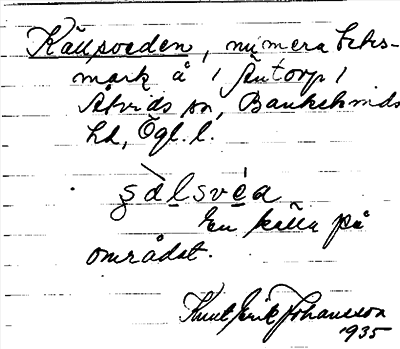 Källsveden, numera betes-
mark å 1 Äntorp 1
Åtvids sn, Bankekinds
hd, Ögl. l.
sælsveda
En källa på
området.
Knut Erik Johansson
1935